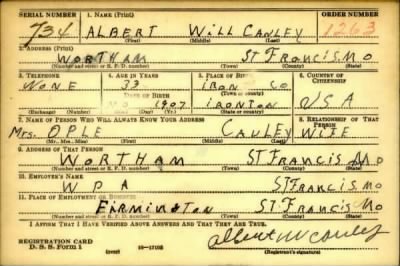 SERIAL NUMBER 1. NAME (Print) ORDER NUMBER
734 ALBERT WILL CAULEY 1263
(First) (Middle) (Last)
2. ADDRESS (Print)
WORTHAM ST FRANCIS MO
(Number and street or R. F. D. number) (Town) (County) (State)
3. TELEPHONE 4. AGE IN YEARS 5. PLACE OF BIRTH 6. COUNTRY OF CITIZENSHIP
NONE 33 IRON CO
DATE OF BIRTH (Town or county)
1907 IRONTON USA
(Exchange) (Number) (Mo.) (Day) (Yr.) (State or country)
7. NAME OF PERSON WHO WILL ALWAYS KNOW YOUR ADDRESS 8. RELATIONSHIP OF THAT PERSON
Mrs. OPLE CAULEY WIFE
(Mr., Mrs., Miss) (First) (Middle) (Last)
9. ADDRESS OF THAT PERSON
WORTHAM ST FRANCIS MO
(Number and street or R. F. D. number) (Town) (County) (State)
10. EMPLOYER'S NAME
WPA ST FRANCIS MO
11. PLACE OF EMPLOYMENT OR BUSINESS
FARMINGTON ST FRANCIS MO
(Number and street or R. F. D. number) (Town) (County) (State)
I AFFIRM THAT I HAVE VERIFIED ABOVE ANSWERS AND THAT THEY ARE TRUE.
REGISTRATION CARD
D. S. S. Form 1 (over) 16-17105 Albert W Cauley
(Registrant's signature)